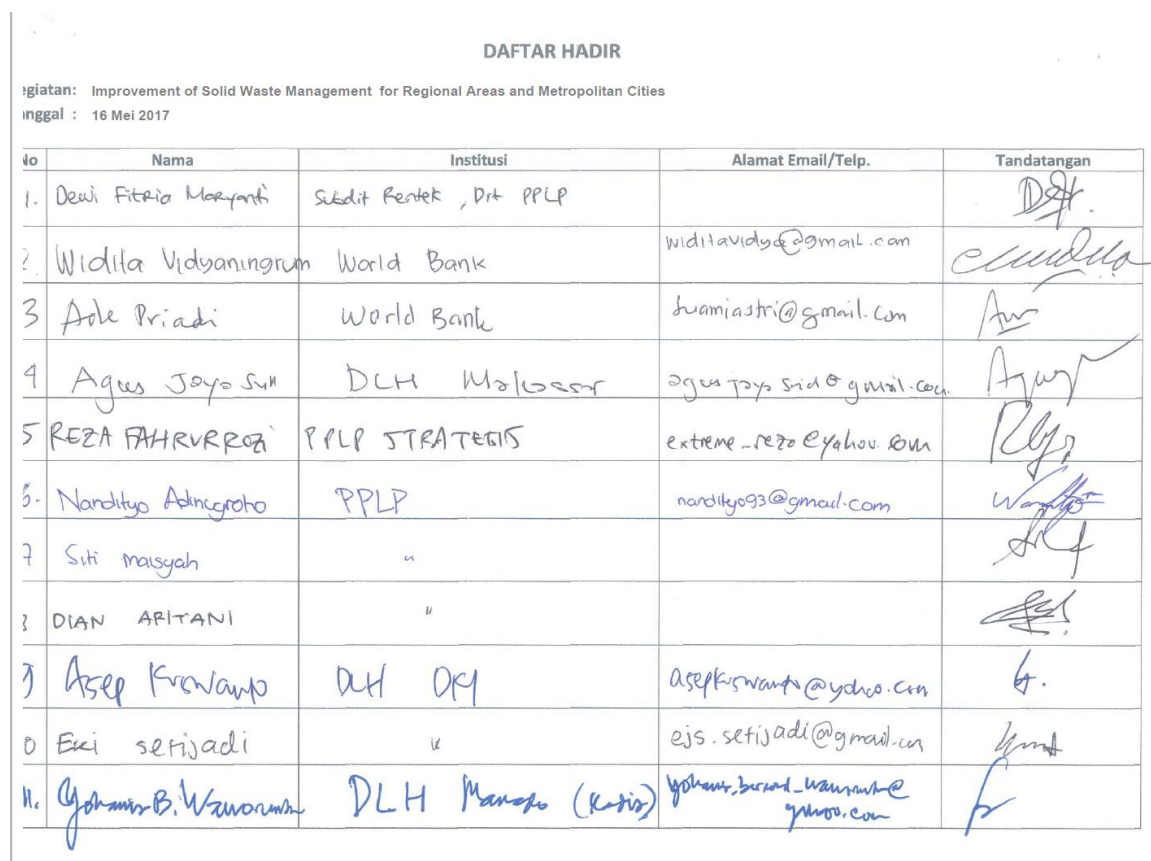 DAFTAR HADIR
egiatan: Improvement of Solid Waste Management for Regional Areas and Metropolitan Cities
anggal : 16 Mei 2017
No Nama Institusi Alamat Email/Telp. Tandatangan
1. Dewi Fitria Maryanti Subdit Rentek, Dit PPLP
2. Widita Vidyaningrum World Bank widitavidya@gmail.com
3 Ade Priadi World Bank suamiastri@gmail.com
4 Agus Jaya DLH Makassar
5 REZA FAHRURROZI PPLP STRATEGIS extreme_reza@yahoo.com
6. Nandityo Adinugroho PPLP nandityo93@gmail.com
7 Siti maisyah "
8 DIAN ARITANI "
9 Asep Kuswanto DLH DKI asepkuswanto@yahoo.com
0 Eki setijadi " ejs.setijadi@gmail.com
11. Yohanis B. DLH Manado (Kadis)
yahoo.com